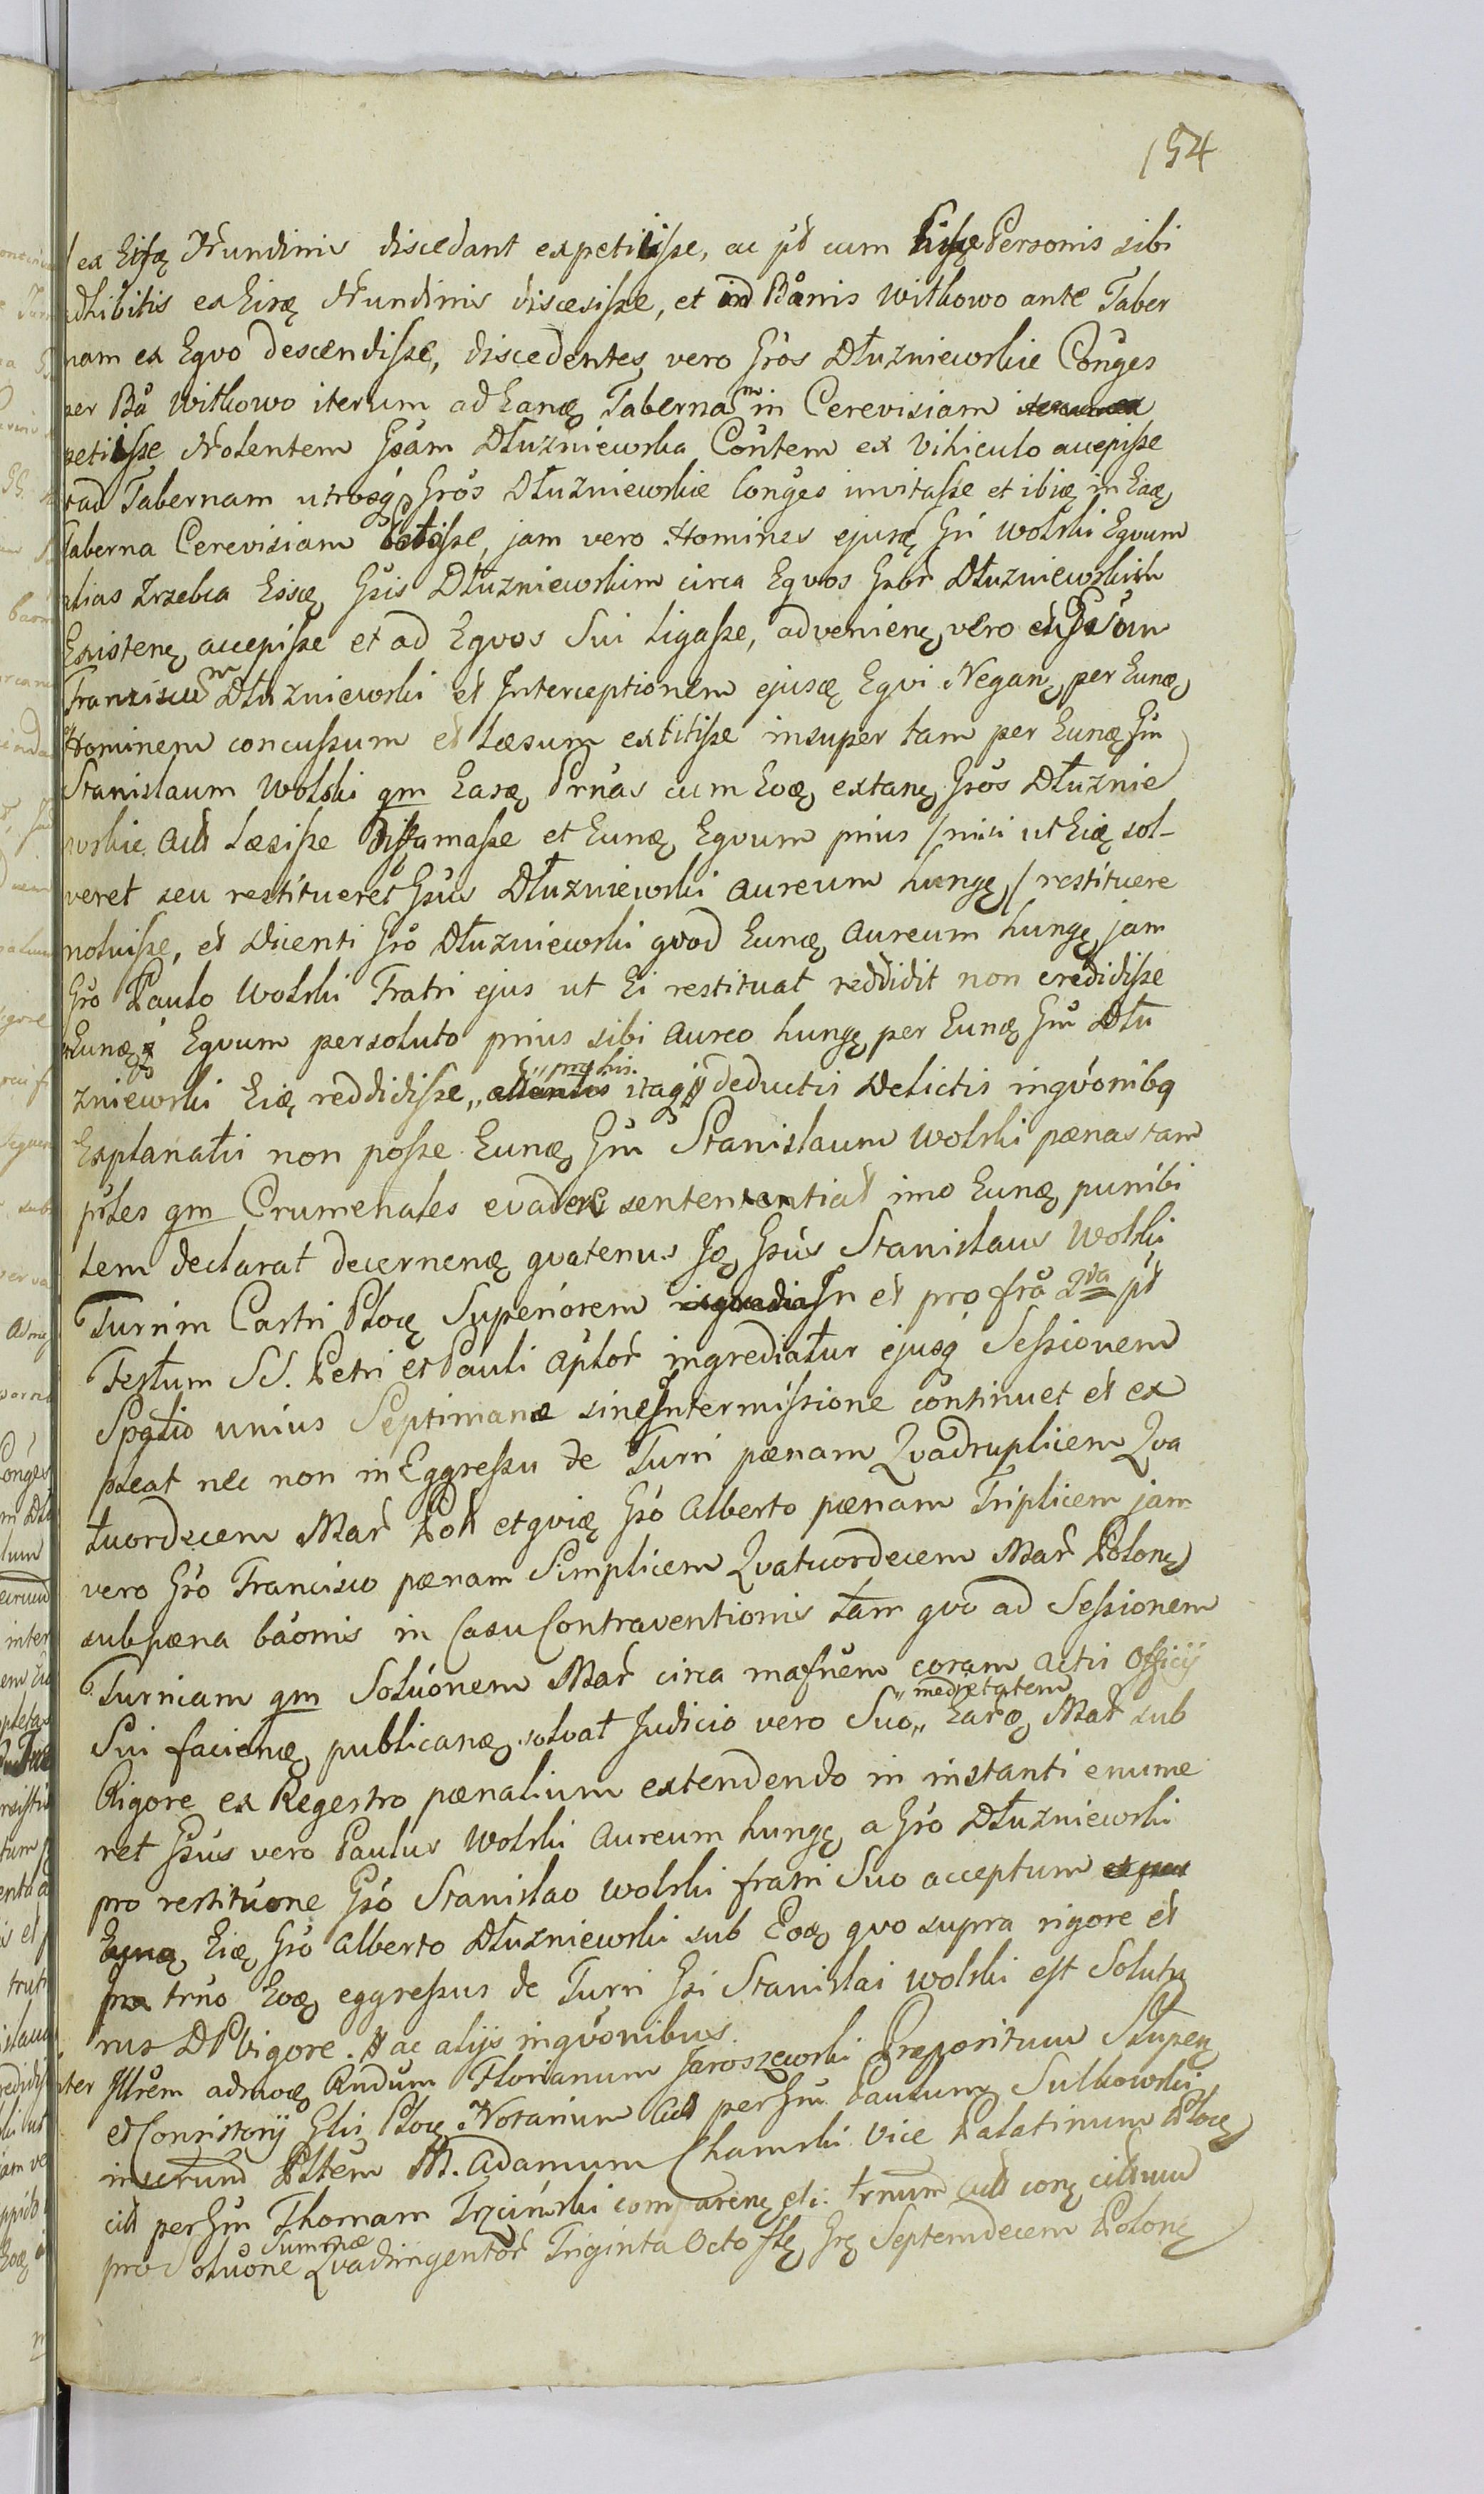 154
ex Eisę Nundinis discedant expetiisse, ac pst cum hisę Personis sibi
adhibitis ex Eisę Nundinis discesisse, et in Bonis Witkowo ante Taber
nam ex Eqvo descendisse, discedentes vero Gsos Dłuzniewskie Conges
per Ba Witkowo iterum ad Eanę Tabernam in Cerevisiam
petiisse Nolentem Gsam Dłuzniewska Contem ex Vihiculo accepisse
ad Tabernam utrosq Gsos Dłuzniewskie Conges invitasse et ibię in Eaę
Taberna Cerevisiam potasse, jam vero Homines ejusę Gsi Wolski Eqvum
alias Zrzebca Eisę Gsis Dłuzniewskim circa Eqvos Gsor Dłuzniewskich
Existenę accepisse et ad Eqvos Sui ligasse, advenienę vero Gsum
Franziscum Dłuzniewski et Interceptionem ejusę Eqvi Neganę per Eunę
Hominem concussum et Læsum extitisse insuper tam per Eunę Gsm
Stanislaum Wolski qm Easę Prnas cum Eoę extanę Gsos Dłuznie
wskie Act Læsisse diffamasse et Eunę Eqvum prius / nisi ut Eię sol-
veret seu restitueret Gsus Dłuzniewski Aureum hungę / restituere
noluisse, et Dicenti Gso Dłuzniewski qvod Eunę Aureum hungę jam
Gso Paulo Wolski Fratri ejus ut Ei restituat reddidit non credidisse
Eunę Eqvum persoluto prius sibi Aureo hungę per Eunę Gsm Dłu
zniewski Eię reddidisse, „pro his. itaq deductis Delictis inqvonibq
Explanatis non posse Eunę Gsm Stanislaum Wolski pænas tam
psles qm Crumenales evadere sentententiat imo Eunę punibi
lem declarat decernenę qvatenus Ię Gsus Stanislaus Wolski
Turrim Castri Plocę Superiorem In et pro fra 2da pst
Festum SS. Petri et Pauli Aplor ingrediatur ejusq Sessionem
Spatio unius Septimanæ sine Intermissione continuet et ex
pleat nec non in Eggressu de Turri pænam Qvadruplicem Qva
tuordecem Mar Pol et qvię Gso Alberto pænam Triplicem jam
vero Gso Francisco pænam Simplicem Qvatuordecem Mar Polonę
sub pæna baonis in Casu Contraventionis tam qvo ad Sessionem
Turricam qm Soluonem Mar circa mafnem coram Actis Officij
Sui facienę publicanę solvat Judicio vero Suo „medietatem„ Earę Mar sub
Rigore ex Regestro pænalium extendendo in instanti enume
ret Gsus vero Paulus Wolski Aureum hungę a Gso Dłuzniewski
pro restituone Gso Stanislao Wolski fratri Suo acceptum
Eię Gso Alberto Dłuzniewski sub Eoę qvo supra rigore et
trno Eoę eggressus de Turri Gsi Stanislai Wolski est Solutu
rus D P Vigore. ac alijs inqvonibus.
Inter Illrem admoę Rndum Florianum Jaroszewski Præpositum Słupenę
et Consistorij Glis Plocę Notarium Act per Gsm Paulum Sulkowski
inserund Pltem M. Adamum Chamski Vice Palatinum Plocę
cit per Gsm Thomam Trzcinski comparenę eti: trnum Act conę citum
pro Soluone Summæ Qvadringentor Triginta Octo flę Grę Septemdecem Polonę